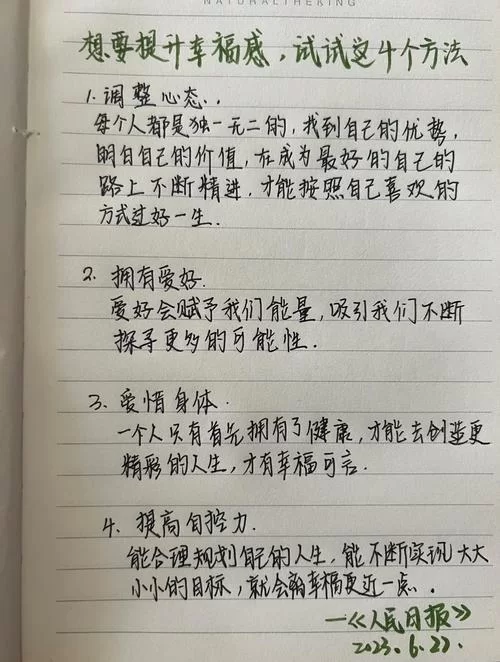 NATURALTHEKING
想要提升幸福感，试试这4个方法
1.调整心态..
每个人都是独一无二的，找到自己的优势，
明白自己的价值，在成为最好的自己的
路上不断精进，才能按照自己喜欢的
方式过好一生.
2.拥有爱好.
爱好会赋予我们能量，吸引我们不断
探寻更多的可能性.
3.爱惜身体.
一个人只有首先拥有了健康，才能去创造更
精彩的人生，才有幸福可言.
4.提高自控力.
能合理规划自己的人生，能不断实现大大
小小的目标，就会离幸福更近一点.
—《人民日报》
2023.6.22.